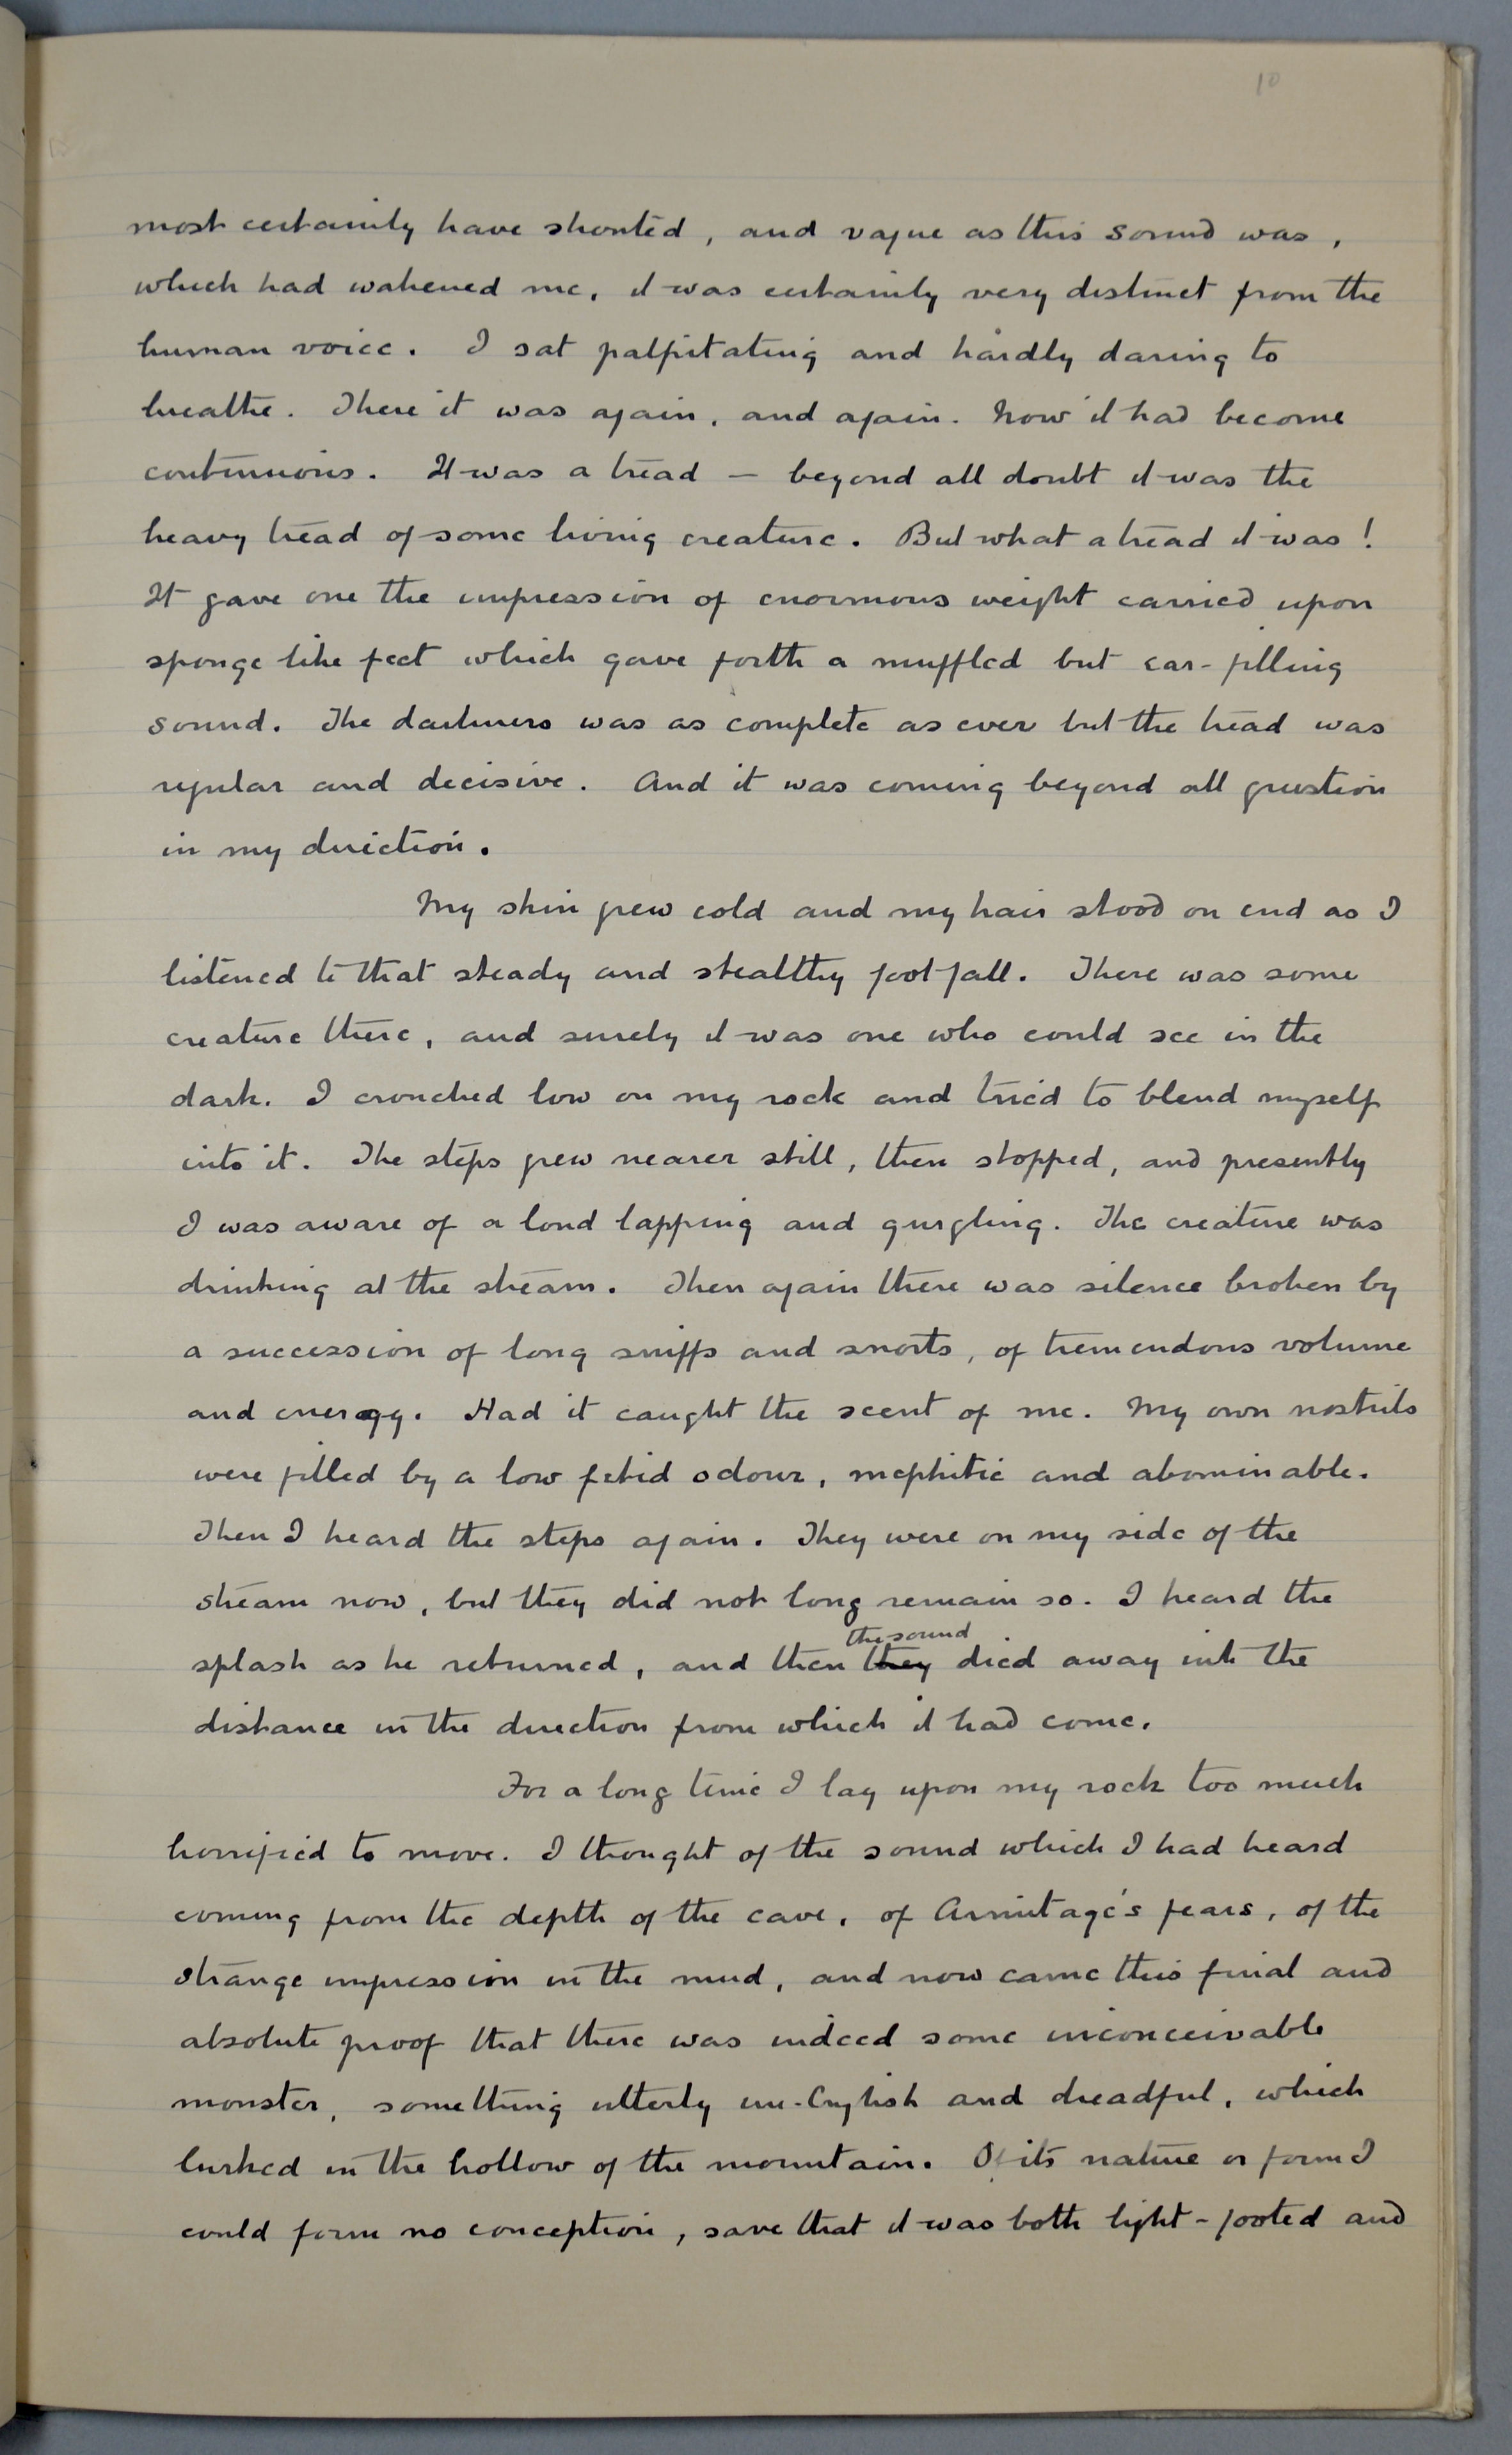 10
most certainly have shouted, and vague as this sound was,
which had wakened me, it was certainly very distinct from the
human voice. I sat palpitating and hardly daring to
breathe. There it was again, and again. Now it had become
continuous. It was a tread — beyond all doubt it was the
heavy tread of some living creature. But what a tread it was!
It gave one the impression of enormous weight carried upon
sponge like feet which gave forth a muffled but ear-filling
sound. The darkness was as complete as ever but the tread was
regular and decisive. And it was coming beyond all question
in my direction.
My skin grew cold and my hair stood on end as I
listened to that steady and stealthy foot fall. There was some
creature there, and surely it was one who could see in the
dark. I crouched low on my rock and tried to blend myself
into it. The steps grew nearer still, then stopped, and presently
I was aware of a loud lapping and gurgling. The creature was
drinking at the stream. Then again there was silence broken by
a succession of long sniffs and snorts, of tremendous volume
and energy. Had it caught the scent of me. My own nostrils
were filled by a low fetid odour, mephitic and abominable.
Then I heard the steps again. They were on my side of the
stream now, but they did not long remain so. I heard the
the sound
splash as he returned, and then they died away into the
distance in the direction from which it had come.
For a long time I lay upon my rock too much
horrified to move. I thought of the sound which I had heard
coming from the depth of the cave, of Armitage's fears, of the
strange impression in the mud, and now came this final and
absolute proof that there was indeed some inconceivable
monster, something utterly un-English and dreadful, which
lurked in the hollow of the mountain. Of its nature or form I
could form no conception, save that it was both light-footed and